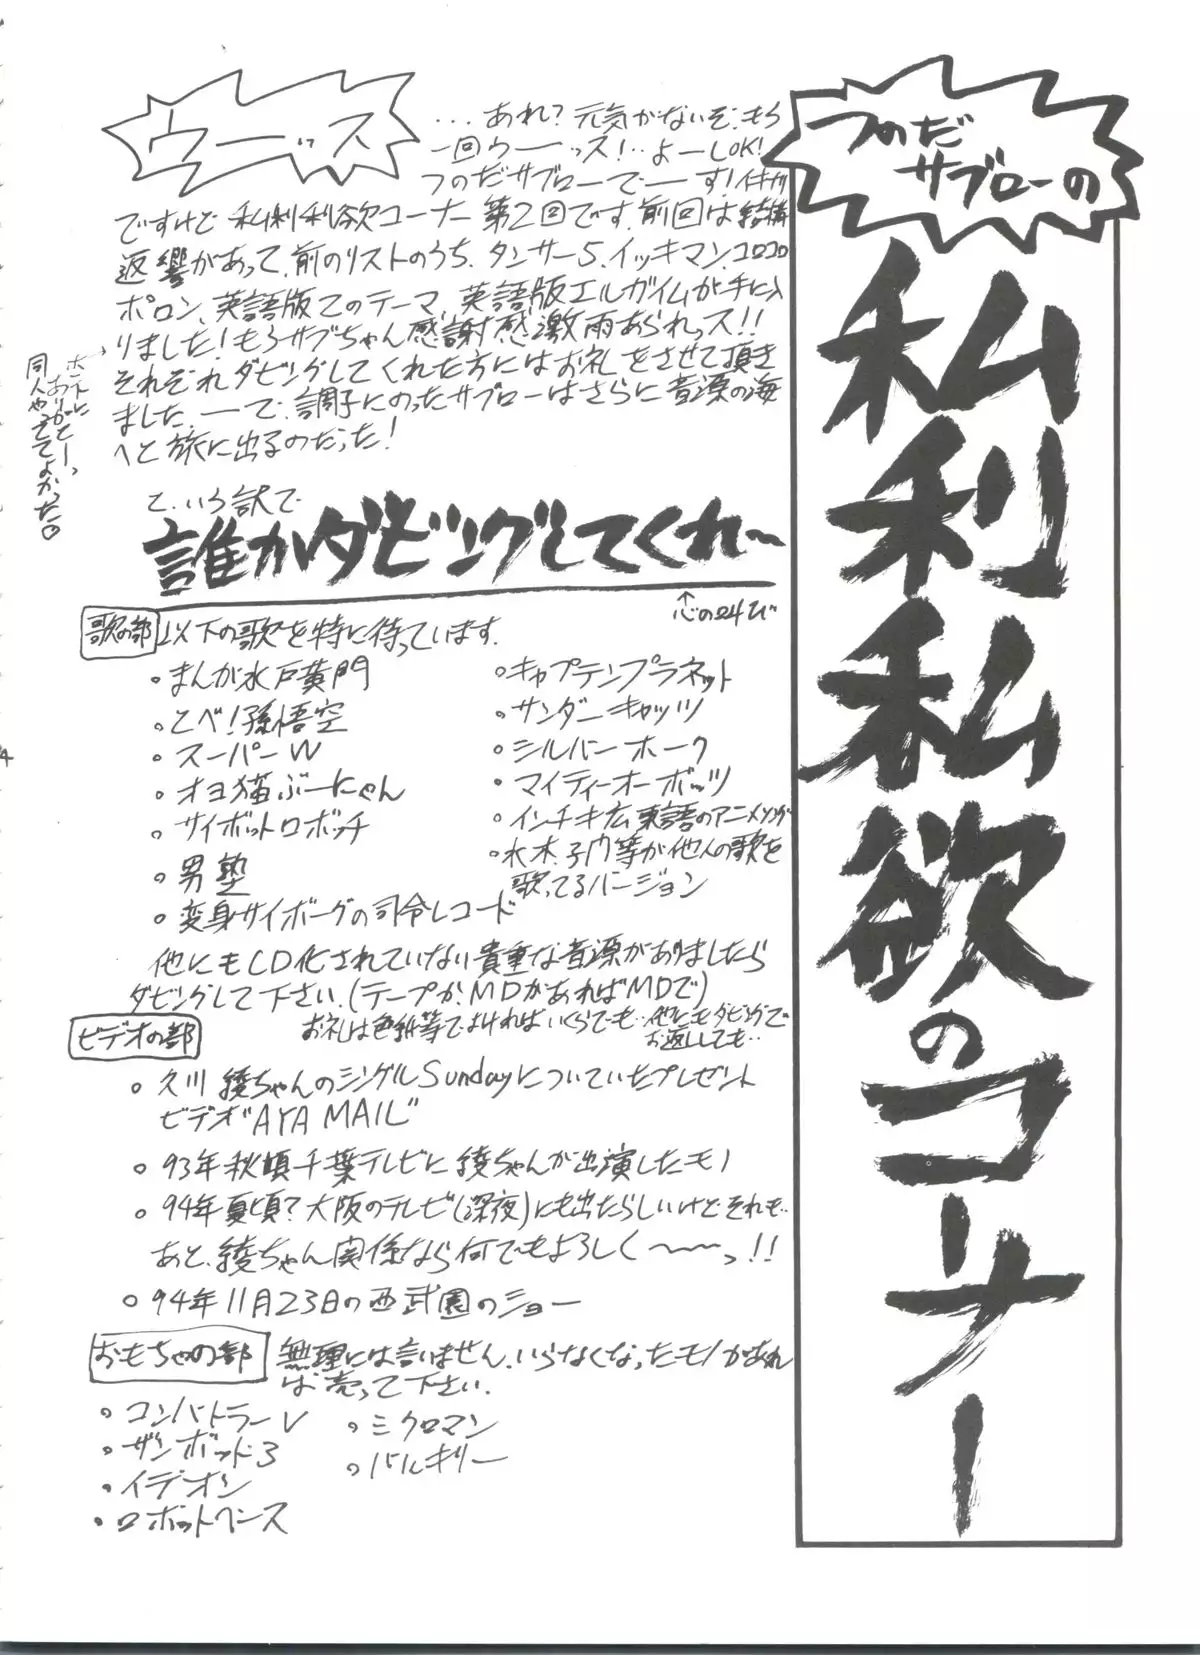 つのだ
サブローの
私利私欲のコーナー
ウーッス
...あれ?元気がないぞ.もう
一回ウーーッス!..よーしOK!
つのだサブローでーーす!イキナリ
ですけど私利私欲コーナー第2回です.前回は結構
返響があって.前のリストのうち.タンサー5.イッキマン.コロコロ
ポロン、英語版Zのテーマ、英語版エルガイムが手に入
りました!もうサブちゃん感謝感激雨あられっス!!
それぞれダビングしてくれた方にはお礼をさせて頂き
ました.ーーで.調子にのったサブローはさらに音源の海
へと旅に出るのだった!
ホントに
ありがとーっ
同人やっててよかった。
と.いう訳で
誰かダビングしてくれ〜
↑心の叫び
歌の部 以下の歌を特に待っています.
・まんが水戸黄門
・とべ!孫悟空
・スーパーW
・オヨ猫ぶーにゃん
・サイボットロボッチ
・男塾
・変身サイボーグの司令レコード
・キャプテンプラネット
・サンダーキャッツ
・シルバーホーク
・マイティーオーボッツ
・インチキ広東語のアニメソング
・水木.子門等が他人の歌を
歌ってるバージョン
他にもCD化されていない貴重な音源がありましたら
ダビングして下さい.(テープか.MDがあればMDで)
お礼は色紙等でよければいくらでも...他にもダビングで
お返ししても..
ビデオの部
・久川綾ちゃんのシングルSundayについていたプレゼント
ビデオ"AYA MAIL"
・93年秋頃千葉テレビに綾ちゃんが出演したモノ
・94年夏頃?大阪のテレビ(深夜)にも出たらしいけどそれも..
あと.綾ちゃん関係なら何でもよろしく〜〜〜っ!!
・94年11月23日の西武園のショー
おもちゃの部 無理には言いません.いらなくなったモノがあれ
ば売って下さい.
・コンバトラーV
・ザンボット3
・イデオン
・ロボットヘンス
・ミクロマン
・バルキリー
4